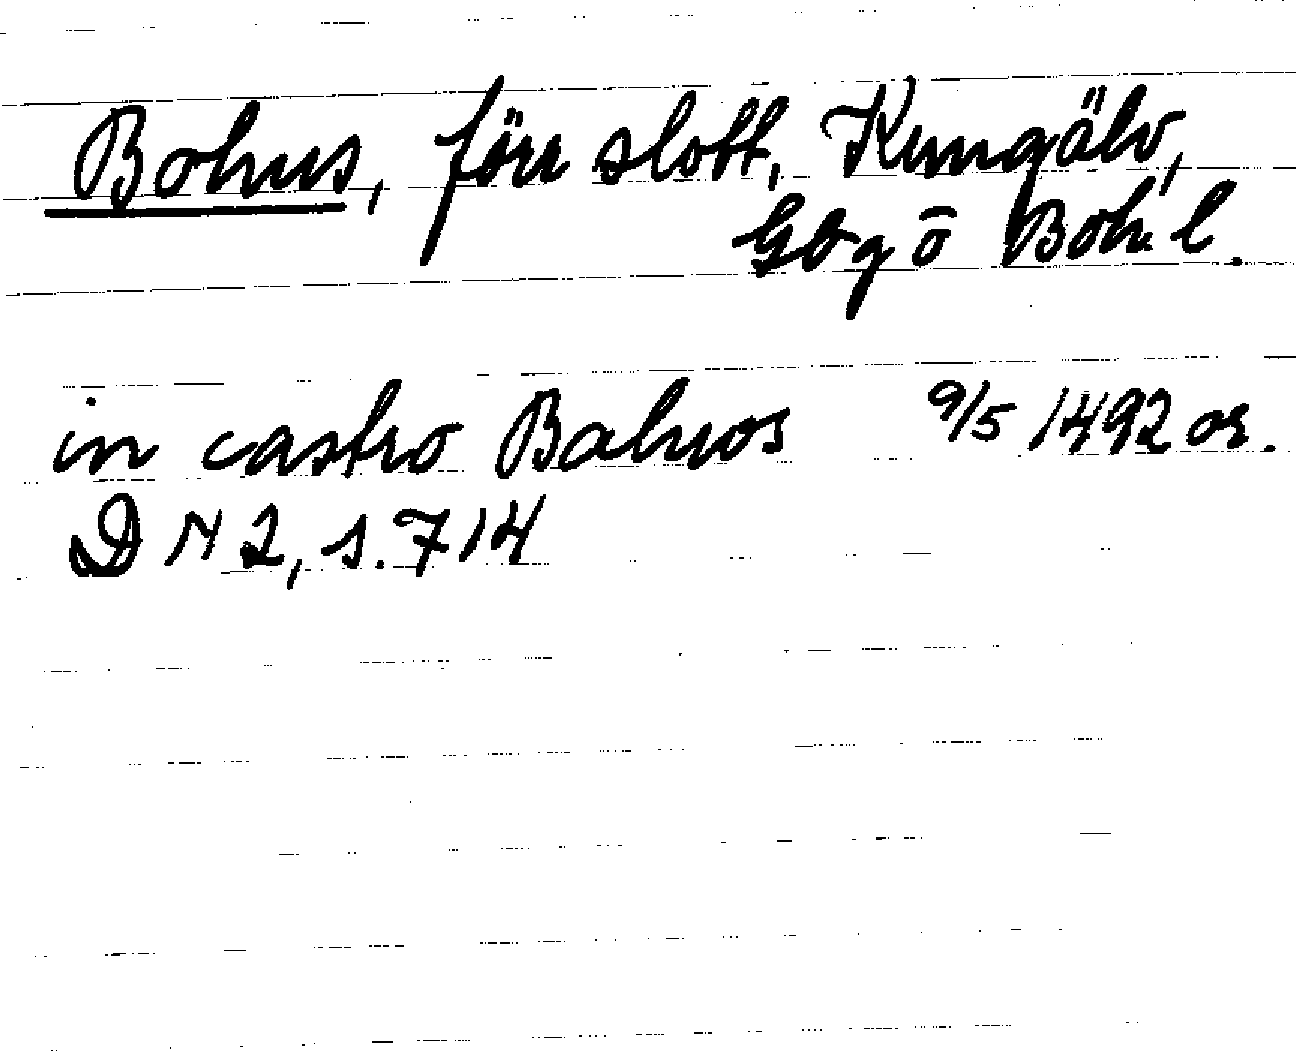 Bohus, förr slott, Kungälv,
Gbg o Boh. l.
in castro Bahus 9/5 1492 or.
DN 2, s. 714